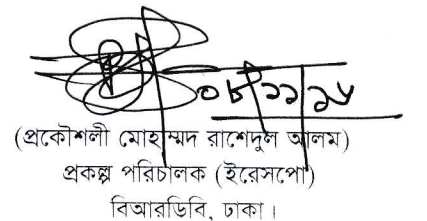 ০৮/১১/২৫
(প্রকৌশলী মোহাম্মদ রাশেদুল আলম)
প্রকল্প পরিচালক (ইরেসপো)
বিআরডিবি, ঢাকা।